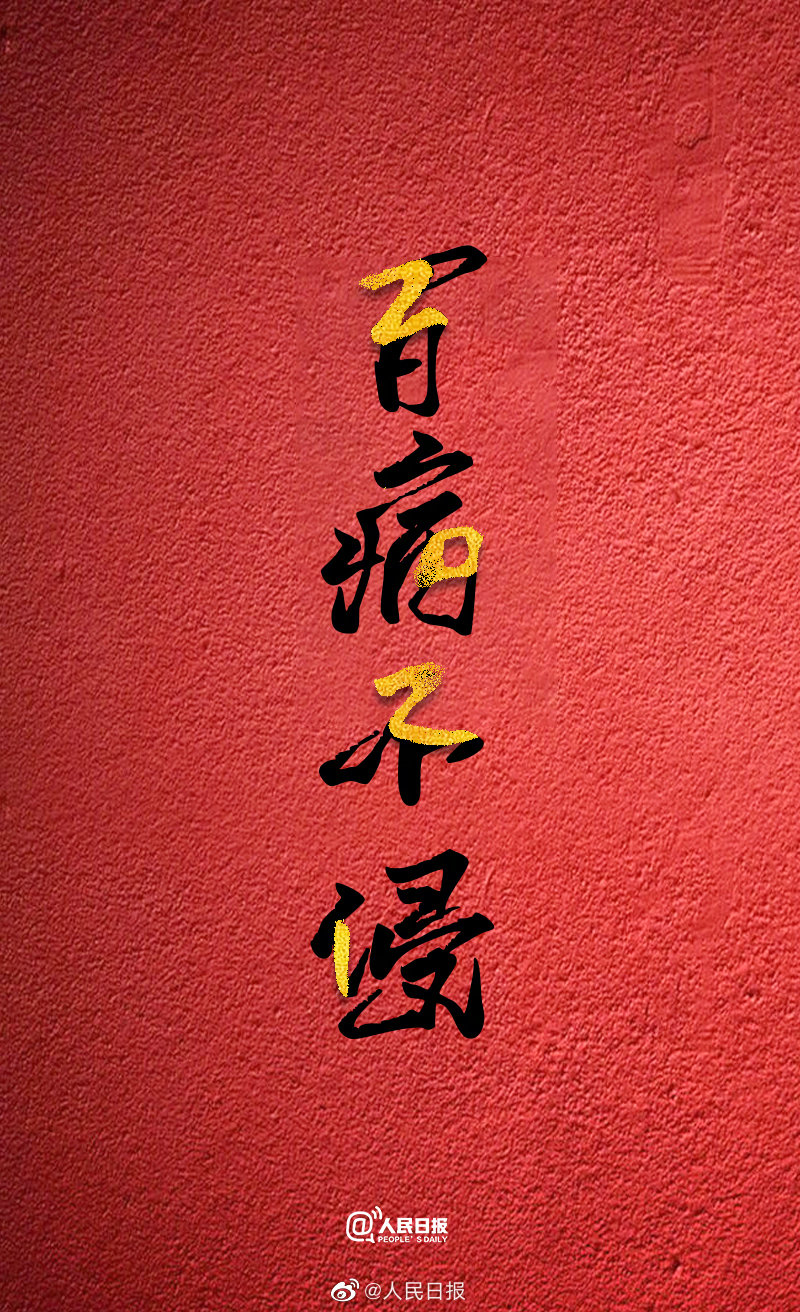 百病不侵
@人民日报
PEOPLE'S DAILY
@人民日报